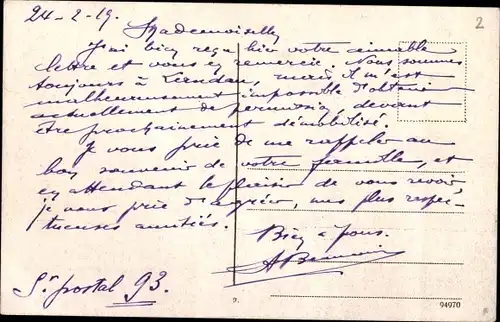 24-2-19.
Mademoiselle
J'ai bien reçu hier votre aimable
lettre et vous en remercie. Nous sommes
toujours à mais il m'est
malheureusement impossible d'obtenir
actuellement de permission, devant
être prochainement démobilisé.
Je vous prie de me rappeler au
bon souvenir de votre famille, et
en attendant le plaisir de vous revoir,
je vous prie d'agréer, mes plus respec-
tueuses amitiés.
Bien à vous.
Sr postal 93.
2
9.
94970